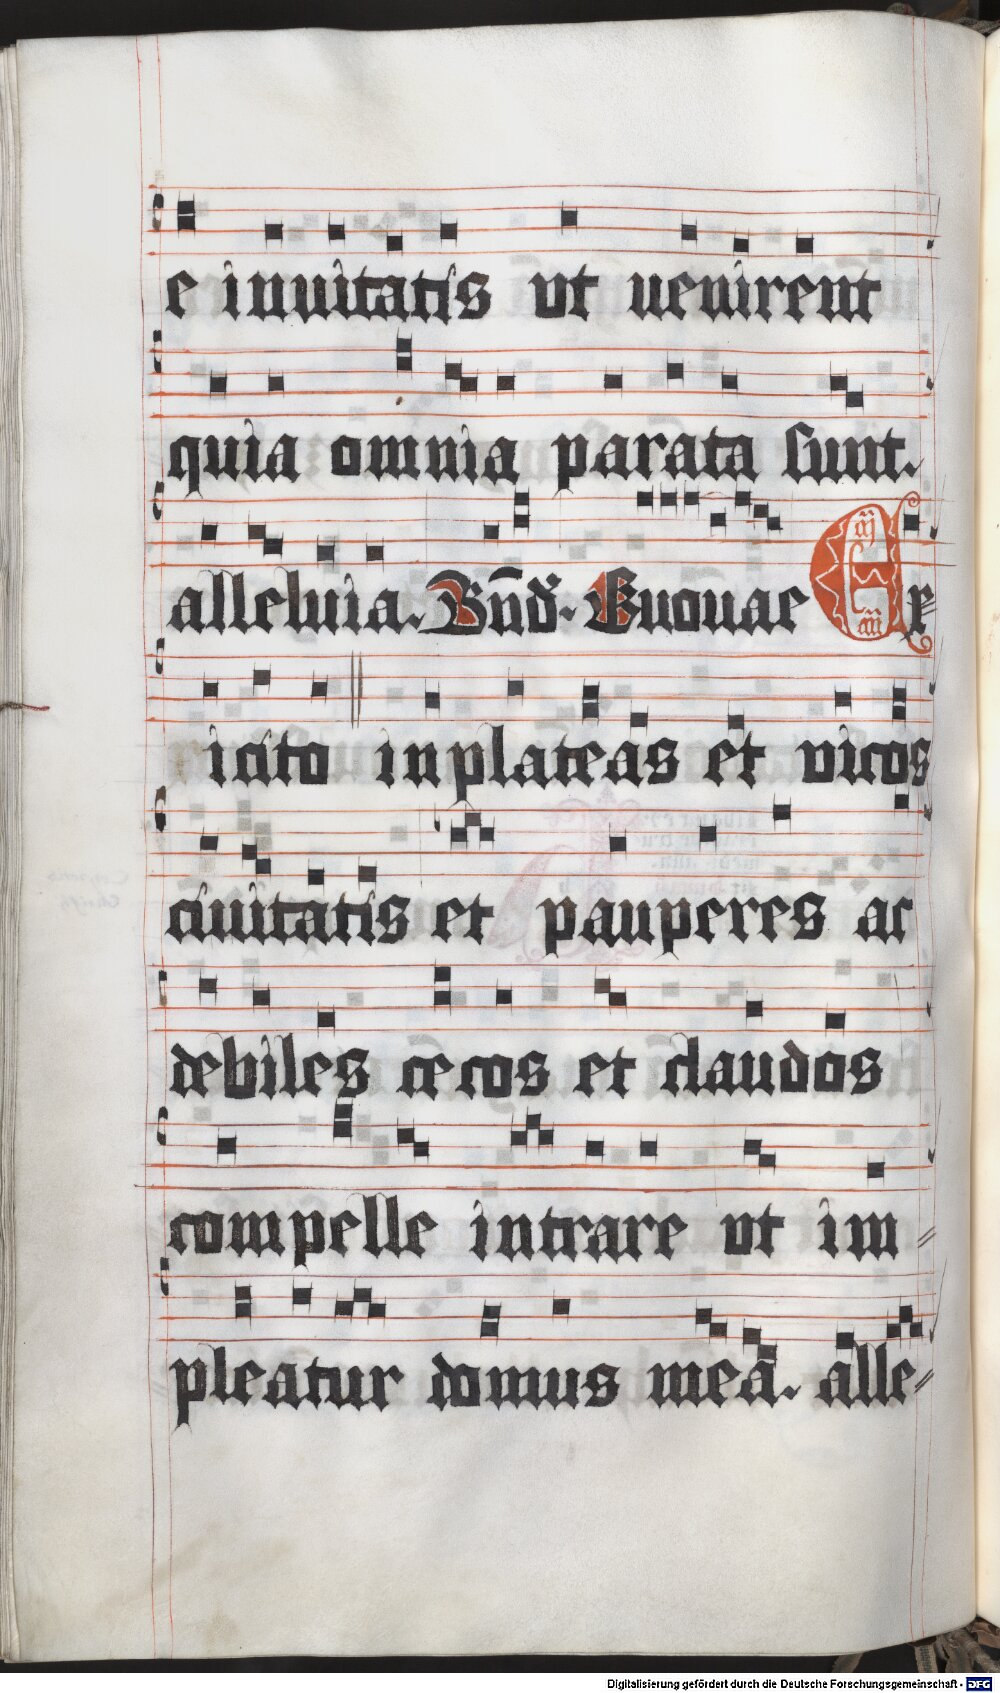 e inuitatis ut uenirent
quia omnia parata sunt.
alleluia. Bn̄d. Euouae Ex
icito in plateas et vicos
ciuitatis et pauperes ac
debiles cecos et claudos
compelle intrare ut im
pleatur domus mea. alle
Digitalisierung gefördert durch die Deutsche Forschungsgemeinschaft - DFG